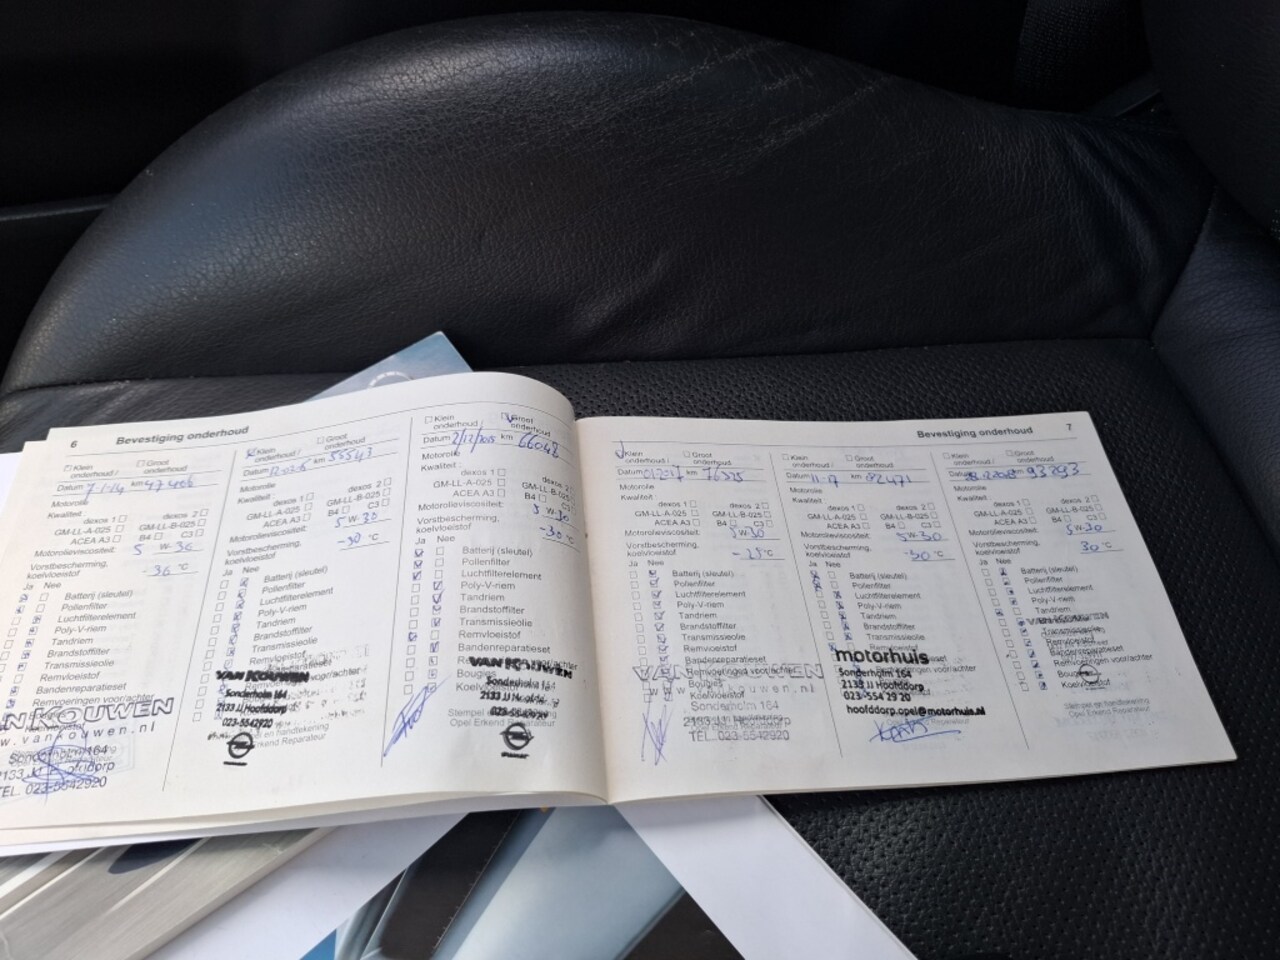 6
Bevestiging onderhoud
Klein
onderhoud /
Groot
onderhoud
Datum 7-1-14 km 47406
Motorolie
Kwaliteit:
dexos 1
dexos 2
GM-LL-A-025
GM-LL-B-025
ACEA A3
B4
C3
Motorolieviscositeit: 5 W-30
Vorstbescherming,
koelvloeistof
-36 °C
Ja Nee
Pollenfilter
Luchtfilterelement
Poly-V-riem
Tandriem
Brandstoffilter
Transmissieolie
Remvloeistof
Bandenreparatieset
Remvoeringen voor/achter
www.vankouwen.nl
Sonderholm 164
2133 JJ Hoofddorp
TEL. 023-5542920
Klein
onderhoud /
Groot
onderhoud
Datum km 55543
Motorolie
Kwaliteit:
dexos 1
dexos 2
GM-LL-A-025
GM-LL-B-025
ACEA A3
B4
C3
Motorolieviscositeit: 5 W-30
Vorstbescherming,
koelvloeistof
-30 °C
Ja Nee
Batterij (sleutel)
Pollenfilter
Luchtfilterelement
Poly-V-riem
Tandriem
Brandstoffilter
Transmissieolie
Remvloeistof
VAN KOUWEN
Sonderholm 164
2133 JJ Hoofddorp
023-5542920
Erkend Reparateur
Klein
onderhoud
Groot
onderhoud
Datum 2/12/2015 km 66048
Motorolie
Kwaliteit:
dexos 1
dexos 2
GM-LL-A-025
GM-LL-B-025
ACEA A3
B4
C3
Motorolieviscositeit: 5 W-30
Vorstbescherming,
koelvloeistof
-30 °C
Ja Nee
Batterij (sleutel)
Pollenfilter
Luchtfilterelement
Poly-V-riem
Tandriem
Brandstoffilter
Transmissieolie
Remvloeistof
Bandenreparatieset
VAN KOUWEN
Bougies
Sonderholm 164
2133 JJ Hoofddorp
023-5542920
Opel Erkend Reparateur
Bevestiging onderhoud
7
Klein
onderhoud /
Groot
onderhoud
Datum km 76525
Motorolie
Kwaliteit:
dexos 1
dexos 2
GM-LL-A-025
GM-LL-B-025
ACEA A3
B4
C3
Motorolieviscositeit: 5W-30
Vorstbescherming,
koelvloeistof
-25 °C
Ja Nee
Batterij (sleutel)
Pollenfilter
Luchtfilterelement
Poly-V-riem
Tandriem
Brandstoffilter
Transmissieolie
Remvloeistof
Bandenreparatieset
Remvoeringen voor/achter
VAN KOUWEN
Bougies
www.vankouwen.nl
Sonderholm 164
2133 JJ Hoofddorp
TEL. 023-5542920
Klein
onderhoud /
Groot
onderhoud
Datum 11-17 km 82471
Motorolie
Kwaliteit:
dexos 1
dexos 2
GM-LL-A-025
GM-LL-B-025
ACEA A3
B4
C3
Motorolieviscositeit: 5W-30
Vorstbescherming,
koelvloeistof
-30 °C
Ja Nee
Batterij (sleutel)
Pollenfilter
Luchtfilterelement
Poly-V-riem
Tandriem
Brandstoffilter
Transmissieolie
Remvloeistof
motorhuis
Sonderholm 164
2133 JJ Hoofddorp
023-554 29 20
hoofddorp.opel@motorhuis.nl
Klein
onderhoud /
Groot
onderhoud
Datum km 93293
Motorolie
Kwaliteit:
dexos 1
dexos 2
GM-LL-A-025
GM-LL-B-025
ACEA A3
B4
C3
Motorolieviscositeit: 5W-30
Vorstbescherming,
koelvloeistof
30 °C
Ja Nee
Batterij (sleutel)
Pollenfilter
Luchtfilterelement
Poly-V-riem
Tandriem
Transmissieolie
Remvloeistof
Bandenreparatieset
Remvoeringen voor/achter
Bougies
Koelvloeistof
Stempel en handtekening
Opel Erkend Reparateur